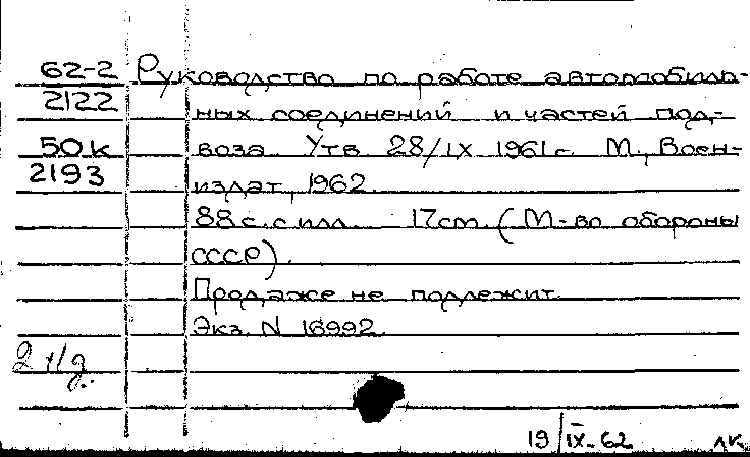 62-2 Руководство по работе автомобиль-
2122 ных соединений и частей под-
50к воза. Утв 28/IX 1961 г. М., Воен-
2193 издат, 1962.
88 с. с илл. 17 см. (М-во обороны
СССР).
Продаже не подлежит.
Экз. N 16992.
19/IX-62 лк